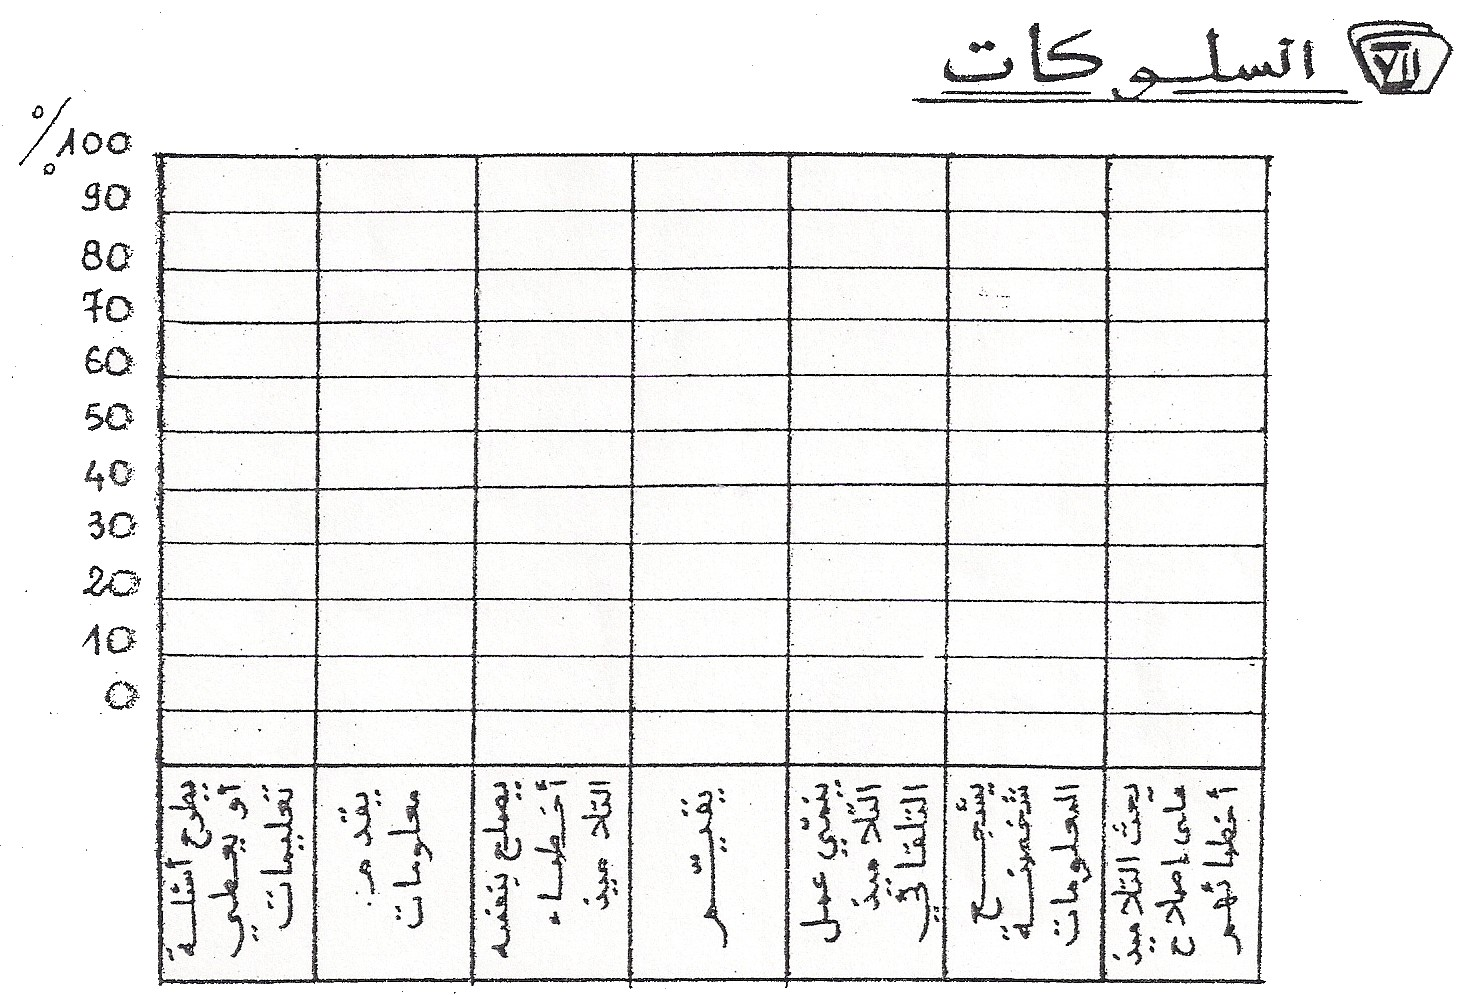 VII السلوكات
% 100
90
80
70
60
50
40
30
20
10
0
يطرح أسئلة
أو يعطي
تعليمات
معلومات
يصلح بنفسه
أخطاء
التلاميذ
يقيّم
ينمّي عمل
التلاميذ
التلقائي
يشجع
شخصنة
المعلومات
يحث التلاميذ
على إصلاح
أخطائهم